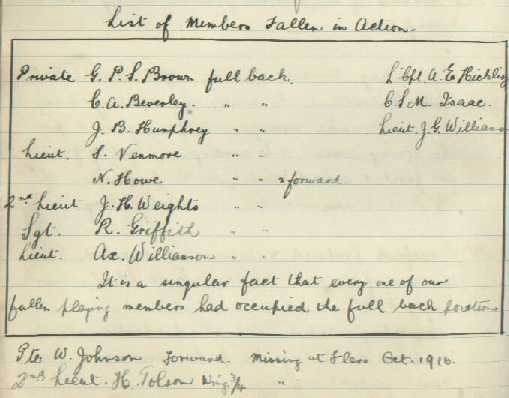 List of Members Fallen in Action.
Private G. P. S. Brown full back. L/Cpl A. E. Hickling
C. A. Beverley. " " C.S.M. Isaac.
J. B. Humphrey " " Lieut. J. G. Williams
Lieut. S. Venmore " "
N. Howe. " " & forward
2nd Lieut J. H. Weights " "
Sgt. R. Griffith " "
Lieut. Ax. Williamson " "
It is a singular fact that every one of our
fallen playing members had occupied the full back position
Pte. W. Johnson Forward. Missing at Flers Oct. 1916.
2nd Lieut. H. Tolson Wing 3/4 "